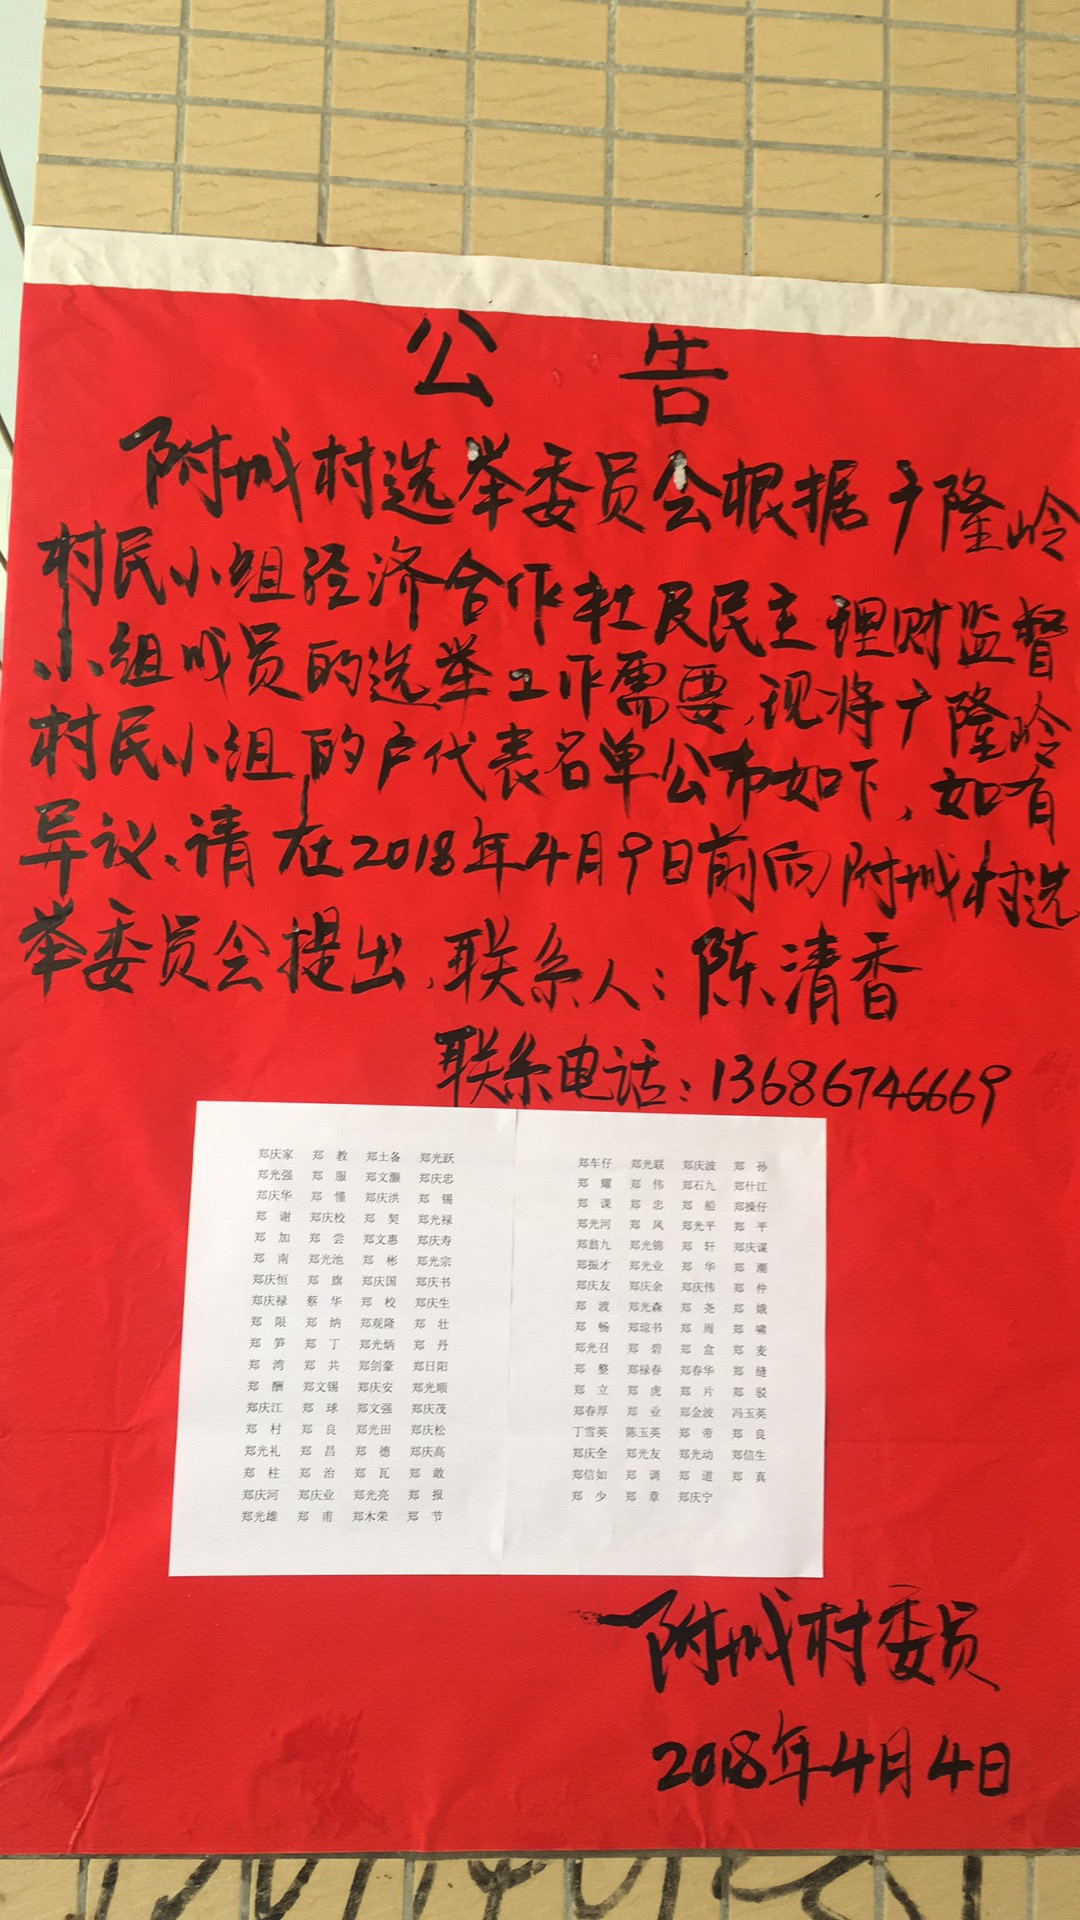 公 告
附城村选举委员会根据广隆岭
村民小组经济合作社及民主理财监督
小组成员的选举工作需要,现将广隆岭
村民小组的户代表名单公布如下,如有
异议、请在2018年4月9日前向附城村选
举委员会提出,联系人:陈清香
联系电话:13686746669
郑庆家 郑 教 郑土备 郑光跃
郑光强 郑 服 郑文灏 郑庆忠
郑庆华 郑 懂 郑庆洪 郑 锡
郑 谢 郑庆校 郑 契 郑光禄
郑 加 郑 尝 郑文惠 郑庆寿
郑 南 郑光池 郑 彬 郑光宗
郑庆恒 郑 旗 郑庆国 郑庆书
郑庆禄 蔡 华 郑 校 郑庆生
郑 限 郑 纳 郑观隆 郑 壮
郑 笋 郑 丁 郑光炳 郑 丹
郑 湾 郑 共 郑剑豪 郑日阳
郑 酬 郑文锡 郑庆安 郑光顺
郑庆江 郑 球 郑文强 郑庆茂
郑 村 郑 良 郑光田 郑庆松
郑光礼 郑 昌 郑 德 郑庆高
郑 柱 郑 治 郑 瓦 郑 敢
郑庆河 郑庆业 郑光亮 郑 报
郑光雄 郑 甫 郑木荣 郑 节
郑车仔 郑光联 郑庆波 郑 孙
郑 耀 郑 伟 郑石九 郑什江
郑 课 郑 忠 郑 船 郑操仔
郑光河 郑 风 郑光平 郑 平
郑翁九 郑光锦 郑 轩 郑庆谋
郑振才 郑光业 郑 华 郑 潮
郑庆友 郑庆余 郑庆伟 郑 仲
郑 波 郑光森 郑 尧 郑 娥
郑 畅 郑琼书 郑 周 郑 啸
郑光召 郑 碧 郑 盒 郑 麦
郑 整 郑禄春 郑春华 郑 缝
郑 立 郑 虎 郑 片 郑 驳
郑春厚 郑 业 郑金波 冯玉英
丁雪英 陈玉英 郑 帝 郑 良
郑庆全 郑光友 郑光动 郑信生
郑信如 郑 调 郑 道 郑 真
郑 少 郑 章 郑庆宁
附城村委员
2018年4月4日